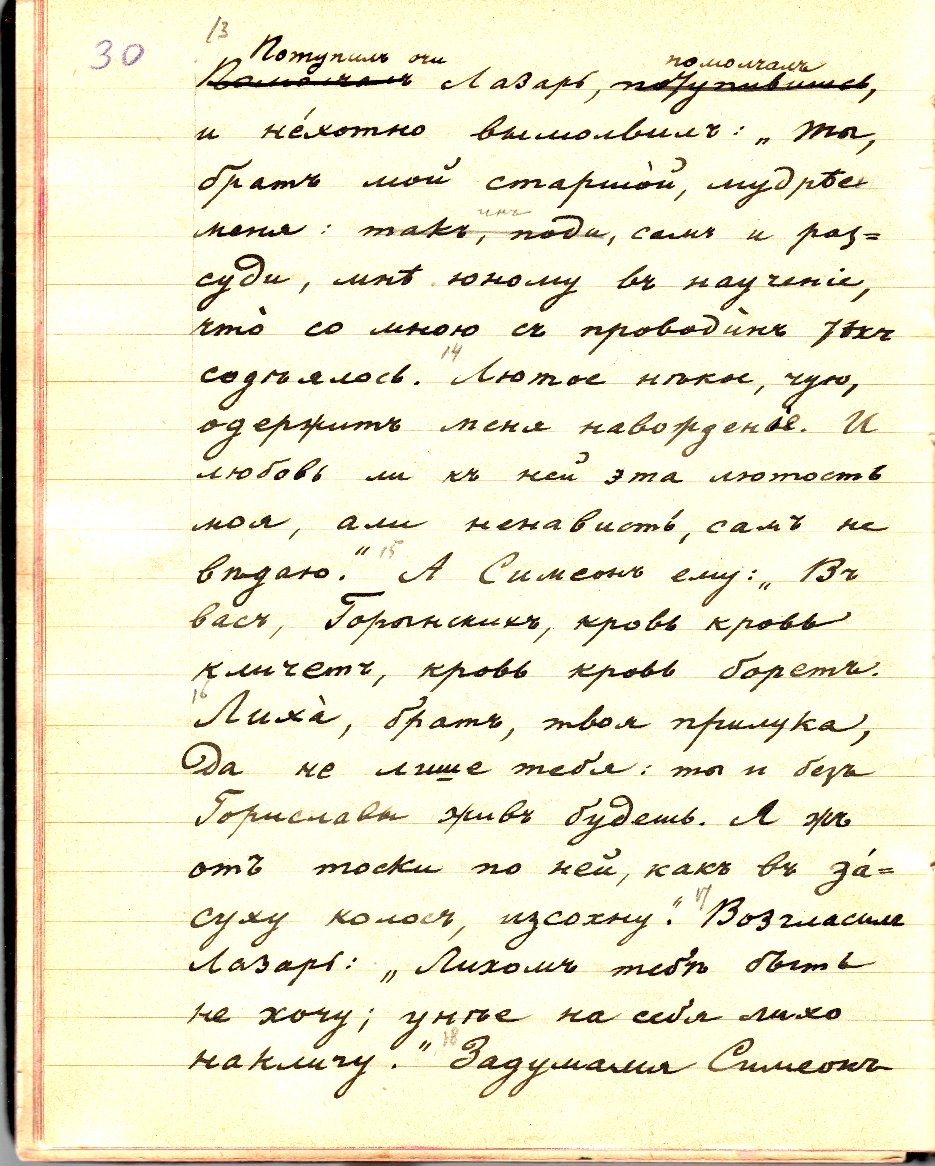 30
13
Потупилъ очи помолчалъ
Помолчалъ Лазарь, потупившись,
и не́хотно вымолвилъ: „Ты,
братъ мой старшо́й, мудрѣе
меня: такъ, поди, самъ и раз=
суди, мнѣ юному въ наученіе,
что̀ со мною съ проводи́нъ тѣхъ
содѣялось. 14 Лютое нѣкое, чую,
одержитъ меня навожденіе. И
любовь ли къ ней эта лютость
моя, али ненависть, самъ не
вѣдаю." 15 А Симеонъ ему: „Въ
васъ, Горынскихъ, кровь кровь
кличетъ, кровь кровь боретъ.
16
Лиха̀, братъ, твоя прилука,
Да не лише тебя: ты и безъ
Гориславы живъ будешь. Я жъ
отъ тоски по ней, какъ въ за́=
суху колосъ, изсохну." 17 Возгласилъ
Лазарь: „Лихомъ тебѣ быть
не хочу; унѣе на себя лихо
накличу." 18 Задумался Симеонъ